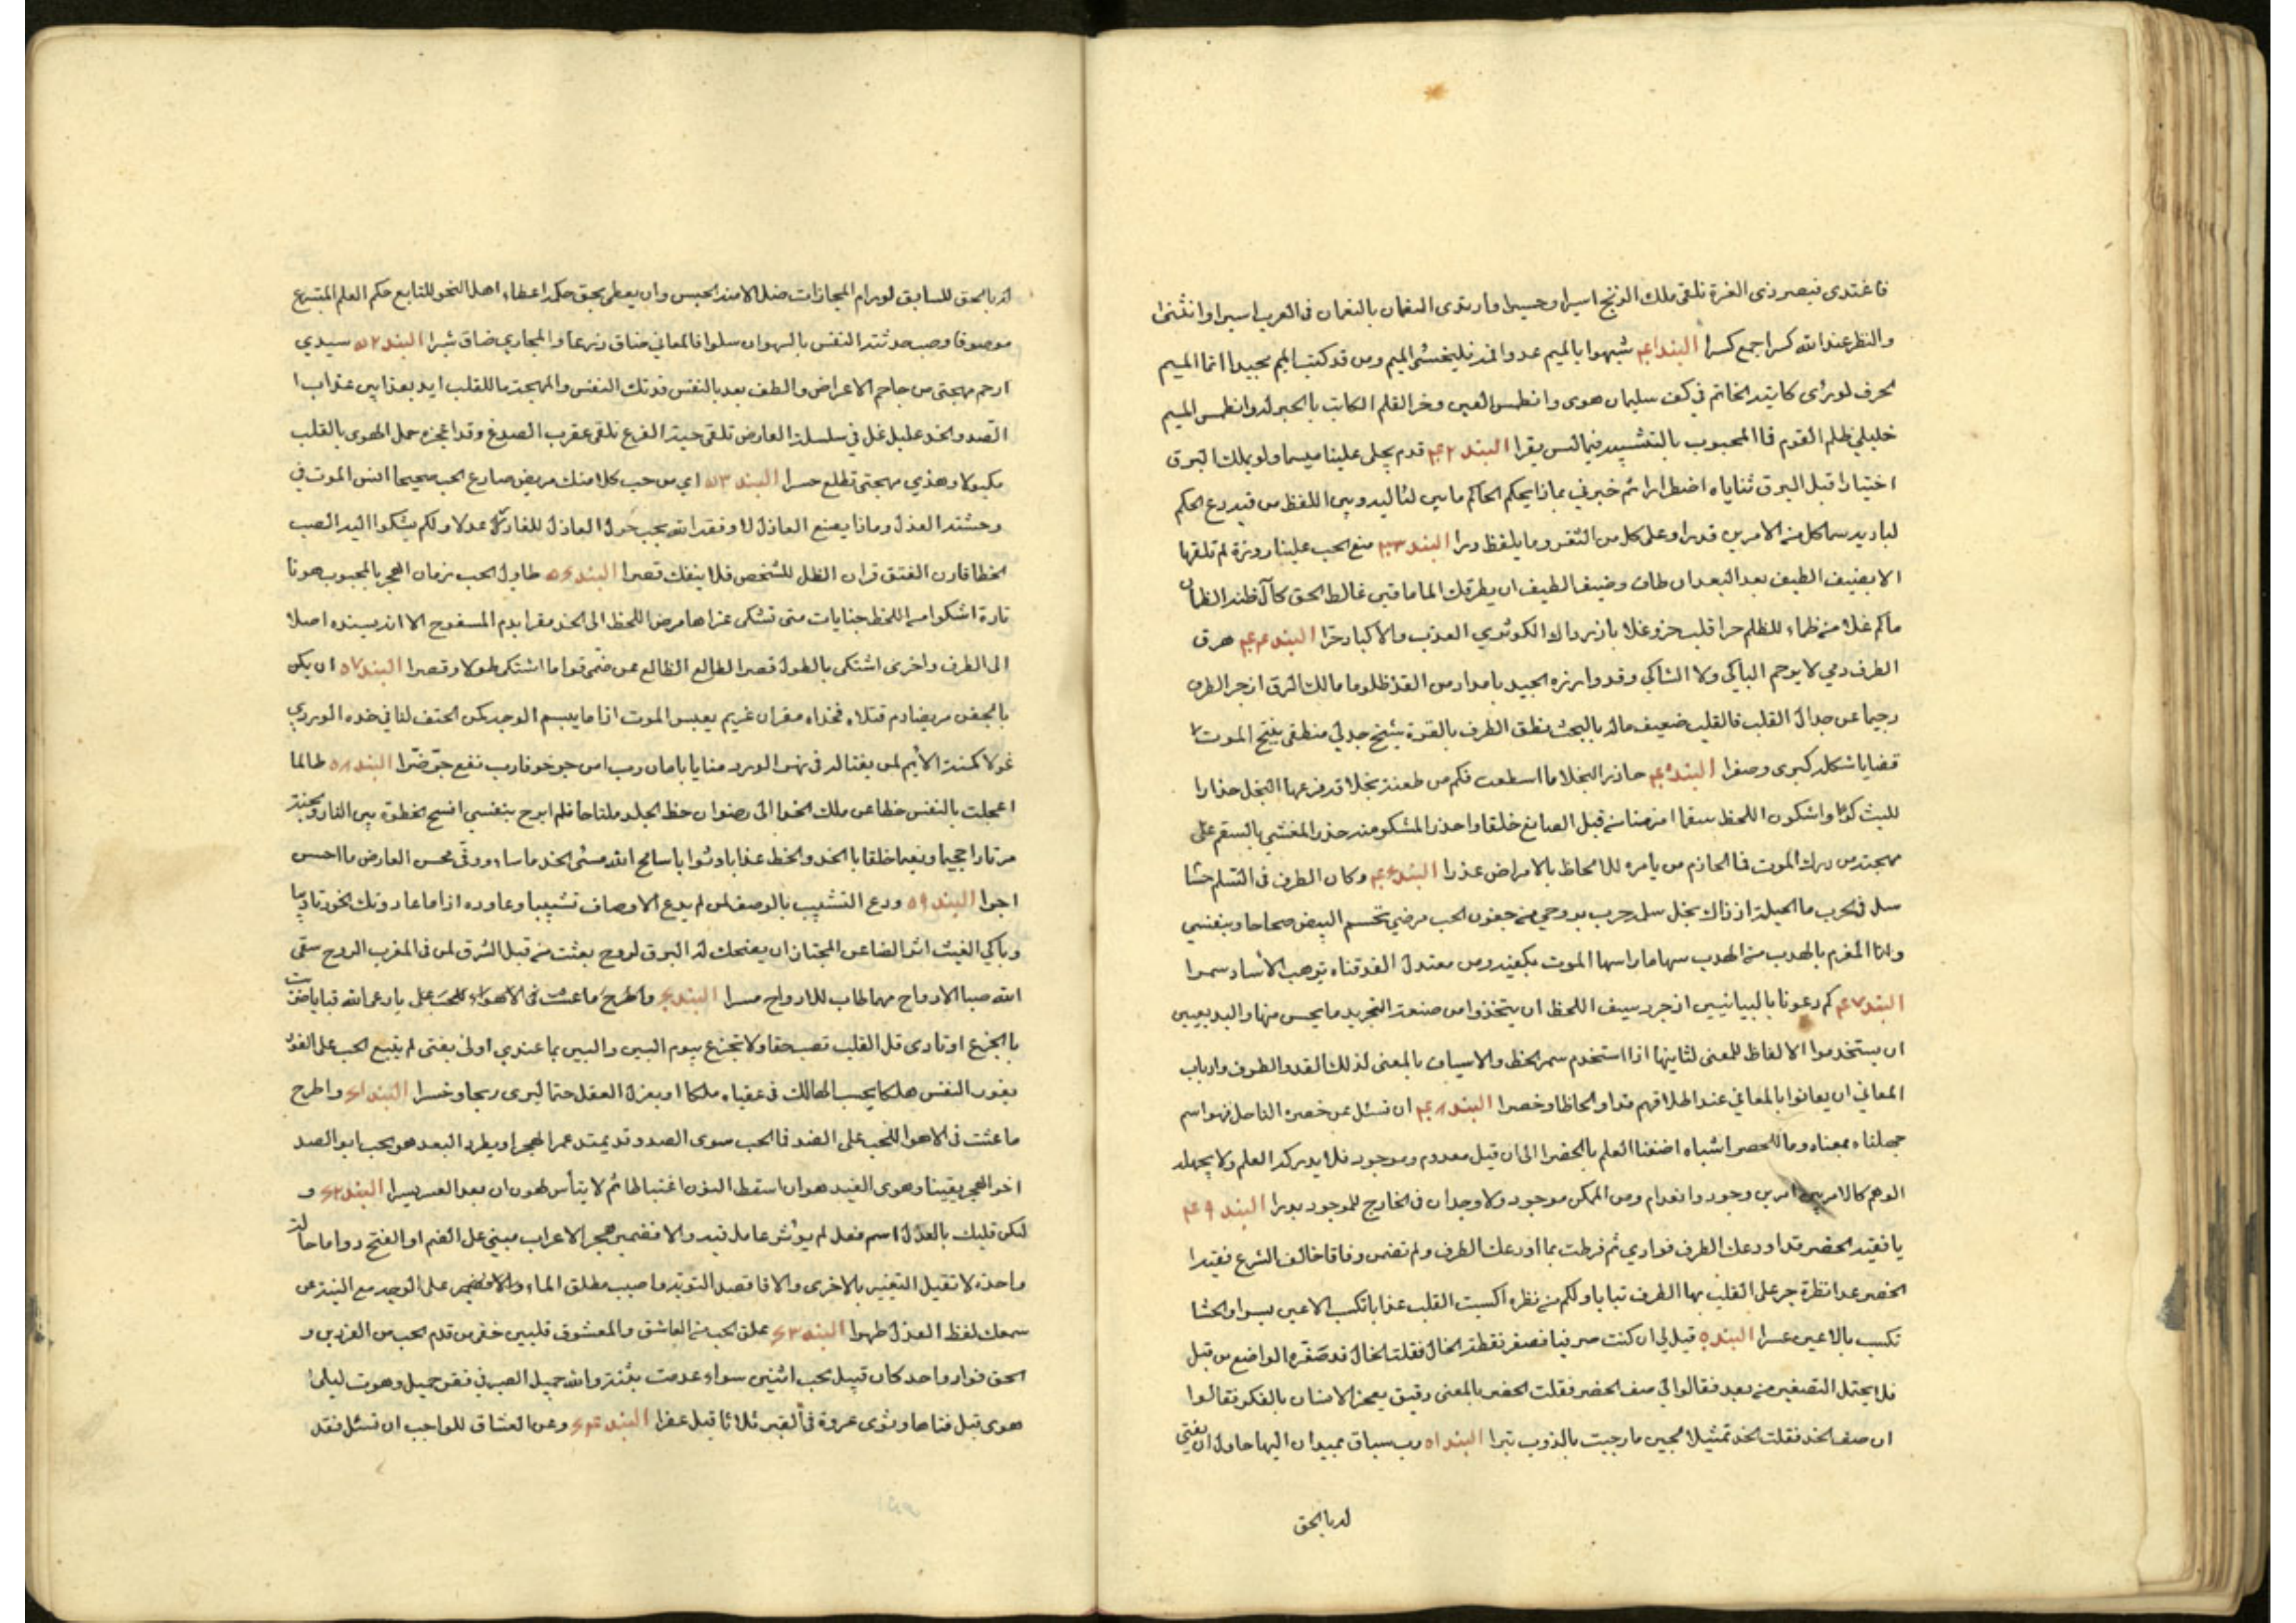 فاغتدى قيصر ذى الغرة تلقى ملك الزنج اسيرا وحسيرا وارتدى النعمان بالنعمان فى العرب اسيرا وانثنى
والنظر عند الله كسرا جمع كسرا البند ٤١ شبهوا بالميم عدوا فمه فليخش الميم ومن قد كتب الميم مجيدا انما الميم
لحرف لو رأى كاتبه الخاتم فى كف سليمان هوى وانطمس العين وخر القلم الكاتب بالحبر له وانطمس الميم
خليلي ظلم القوم فا المحبوب بالتشبيه فيما ليس يقرا البند ٤٢ قدم يجلى علينا ميسما ولو يملك البرق
اختيارا قبل البرق ثناياه اضطرارا ثم خبرني بماذا يحكم الحاكم ما بين لئاليه وبين اللفظ من فيه دع الحكم
لباديه سما كل من الامرين قدرا وعلى كل من الثغر وما يلفظ درا البند ٤٣ منع الحب علينا زورة لم تلقها
الا بضيف الطيف بعد البعد ان طاف وضيف الطيف ان يطرقك الماما فتى غالط الحق كآل ظنه الظمآن
ماكم غلا من ظماء للظلم حرا قلب حز وغلا باز رواك الكوثري العذب والاكباد حرّا البند ٤٤ هرق
الطرف دمي لا يرحم الباكي ولا الشاكي وقد وازره الجيد بامداد من القد ظلوما مالك الرق ازجر الطرف
رحيما عن جدال القلب فالقلب ضعيف ماله بالبحث نطق الطرف بالقوة شيخ جدلي منطقى ينتج الموت لا
قضايا شكله كبرى وصغرا البند ٤٥ حاذر النجلا ما اسطعت فكم من طعنة نجلا قد فزعها النجل حذارا
للبث كونا واشكون اللحظ سقما امزمنا من قبل الصانع خلقا واحذر المشكو منه حذر المغشي بالسقم على
مهجته من درك الموت فما الحازم من يامره للالحاظ بالامراض عذرا البند ٤٦ وكان الطرف فى التسلم حشا
سل فى الحرب ما الحيلة اذ ذاك بخل سل حرب بوروحي من جفون الحب مرضي تحسم البيض صحاحا وبنفسي
وانا المغرم بالهدب من الهدب سهاما راسها الموت بكفيه ومن معتدل القد قناه توهب الآساد سمرا
البند ٤٧ كم دعونا بالبيانيين اذ جرد سيف اللحظ ان يتخذوا من صنعة التجريد ما يحسن منها والبديعيين
ان يستخدموا الالفاظ للمعنى لثانيها اذا استخدم سمر الخط والاسياف بالمعنى لذلك القد والطرف وارباب
المعاني ان يعانوا بالمعاني عند اطلاقهم قدا والحاظا وخصرا البند ٤٨ ان تسئل عن خصره الناحل فهو اسم
جهلناه بمعناه وما للحصر اشباه اضفنا العلم بالحضرا الى ان قيل معدوم وموجود فلا يدركه العلم ولا يجهله
الوهم كالامرين امرين وجود وانعدام ومن الممكن موجود ولا وجدان فى الخارج للموجود يدرا البند ٤٩
يا فقيد الخصر قد اودعك الطرف فوادي ثم فرطت بما اودعك الطرف ولم تضمن وفاقا خالف الشرع فقيدا
الخصر عدا نظرة جر على القلب بها الطرف تباباولكم من نظرة اكسبت القلب عذابا تكسب الاعين يسرا والحشا
تكسب بالاعين عسرا البند ٥٠ قيل لي ان كنت صرفيا فصغر نقطة الخال فقلت الخال قد صغره الواضع من قبل
فلا يحتمل التصغير من بعد فقالوا لي صف الخصر فقلت الخصر بالمعنى دقيق يعجز الانسان بالفكر فقالوا
ان صف الخد فقلت الخد تمثيلا لجين مازجت بالذوب تبرا البند ٥١ رب سباق بميدان اليها حاول ان يفتي
له بالحق
له بالحق للسابق لو رام المجازات ضلل الامنه الحبس وان يعطى بحق حكم اعطاء اهل النحو للتابع حكم العلم المتبوع
موصوفا وصب حدثته النفس بالسهوان سلوا فالمعاني ضاق ذرعا والمجاري ضاق شبرا البند ٥٢ سيدي
ارحم مهجتى من جاحم الاعراض والطف بعد بالنفس فدتك النفس والمهجة ما للقلب ايد بعذابين عذاب ا
الصد والخد عليل غل في سلسلة العارض تلقى حية الفرع تلقى عقرب الصدغ وقد اعجزه حمل الهوى بالقلب
مكبولا وهذي مهجتى تطلع حسرا البند ٥٣ اي من حب كلا منك مريض صارع الحب صحيحا انس الموت في
وحشته العذل وماذا يصنع العاذل لا وفقه الله بحب حول العاذل للغادر عدلا ولكم يشكوا اليه الصب
الخطا قارن الفتق قران الظل للشخص فلا ينفك قصرا البند ٥٤ طاول الحب زمان الهجر بالمحبوب هونا
تارة اشكوا من اللحظ جنايات متى تشكى عزاها مرض اللحظ الى الخد مقرا بدم المسفوح الا انه يسنده اصلا
الى الطرف واخرى اشتكى بالطول قصرا الطالع الظالع عمن ضمى قواما اشتكى طولا وقصرا البند ٥٧ ان يكن
بالجفن مريضا دم قتلاه فخداه مقران غريم يعبس الموت اذا ما يبسم الوجه يكن الحتف لنا في خده الوردي
غولا كمنة الايم لمن يغتاله فى نهر الورد منايا بامان رب امن جر خوفا رب نفع جر ضرّا البند ٥٨ طالما
اعجلت بالنفس خطا عن ملك الخد الى رضوان حظ الجلد ملتاحا فلم ابرح بنفسي افسح الخطوة بين النار والجنة
مرتادا جحيما ونعيما خلقا بالخد والحظ عذابا وثوابا سامح الله مسئى الخد ما ساء ووفّى محسن العارض ما احسن
اجرا البند ٥٩ ودع التشبيب بالوصف لمن لم يدع الاوصاف تشبيبا وعاوده اذا ما عاد وتك الخود تاديبا
وباكي الغيث اثر الضاعن المجتاز ان يضحك له البرق لروح بعثت من قبل الشرق لمن فى المغرب الروح سقى
الله صبا الارواح مهما طاب للارواح مسرا البند ٦٠ واطرح ما عشت فى الاهواء للحب على يا رعى الله قبابا ضربت
بالجزع اوتادى قل القلب تصب حقا ولا تجزع بيوم البين والبين بما عندي اولى بفتى لم يتبع الحب على الفور
بفور النفس هلكا يحسب الهالك فى عقباه ملكا او بعزل العقل حتما ليرى ربحا وخسرا البند ٦١ واطرح
ما عشت فى الاهوا للحب على الضد فالحب سوى الصد وقد يمتد عمر الهجر او يطرد البعد هو الحب ابو الصد
اخو الهجر يقينا وهوى الغيد هوان اسقط النون اغتباطا ثم لا يتأس لهون ان بعد العسر يسرا البند ٦٢ و
لتكن قلبك بالعذل اسم فعل لم يؤثر عامل فيه والا فضمير هجر الاعراب مبني على الضم او الفتح دواما حالة
واحده لا تقبل التغيير بالاخرى والا فاقصد التوبة وما صيب مطلق الماء والا فضمير على الوجه مع النية عن
سمعك لفظ العذل طهرا البند ٦٣ علق الحب من العاشق والمعشوق قلبين خفر من قدم الحب من الفردين و
الحق فواد واحد كان قبيل الحب اثنين سواء عدمت بثنة والله جميل الصب فى فقر جميل وهوت ليلى ا
هوى قبل فناها وثوى عروة في القبر ثلاثا قبل عفرا البند ٦٤ وعن العشاق للواجب ان تسئل فقد